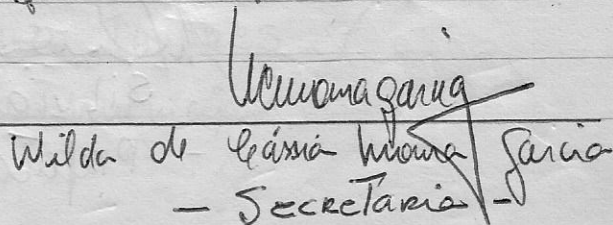 Wilda de Cássia Moura Garcia
- Secretaria -